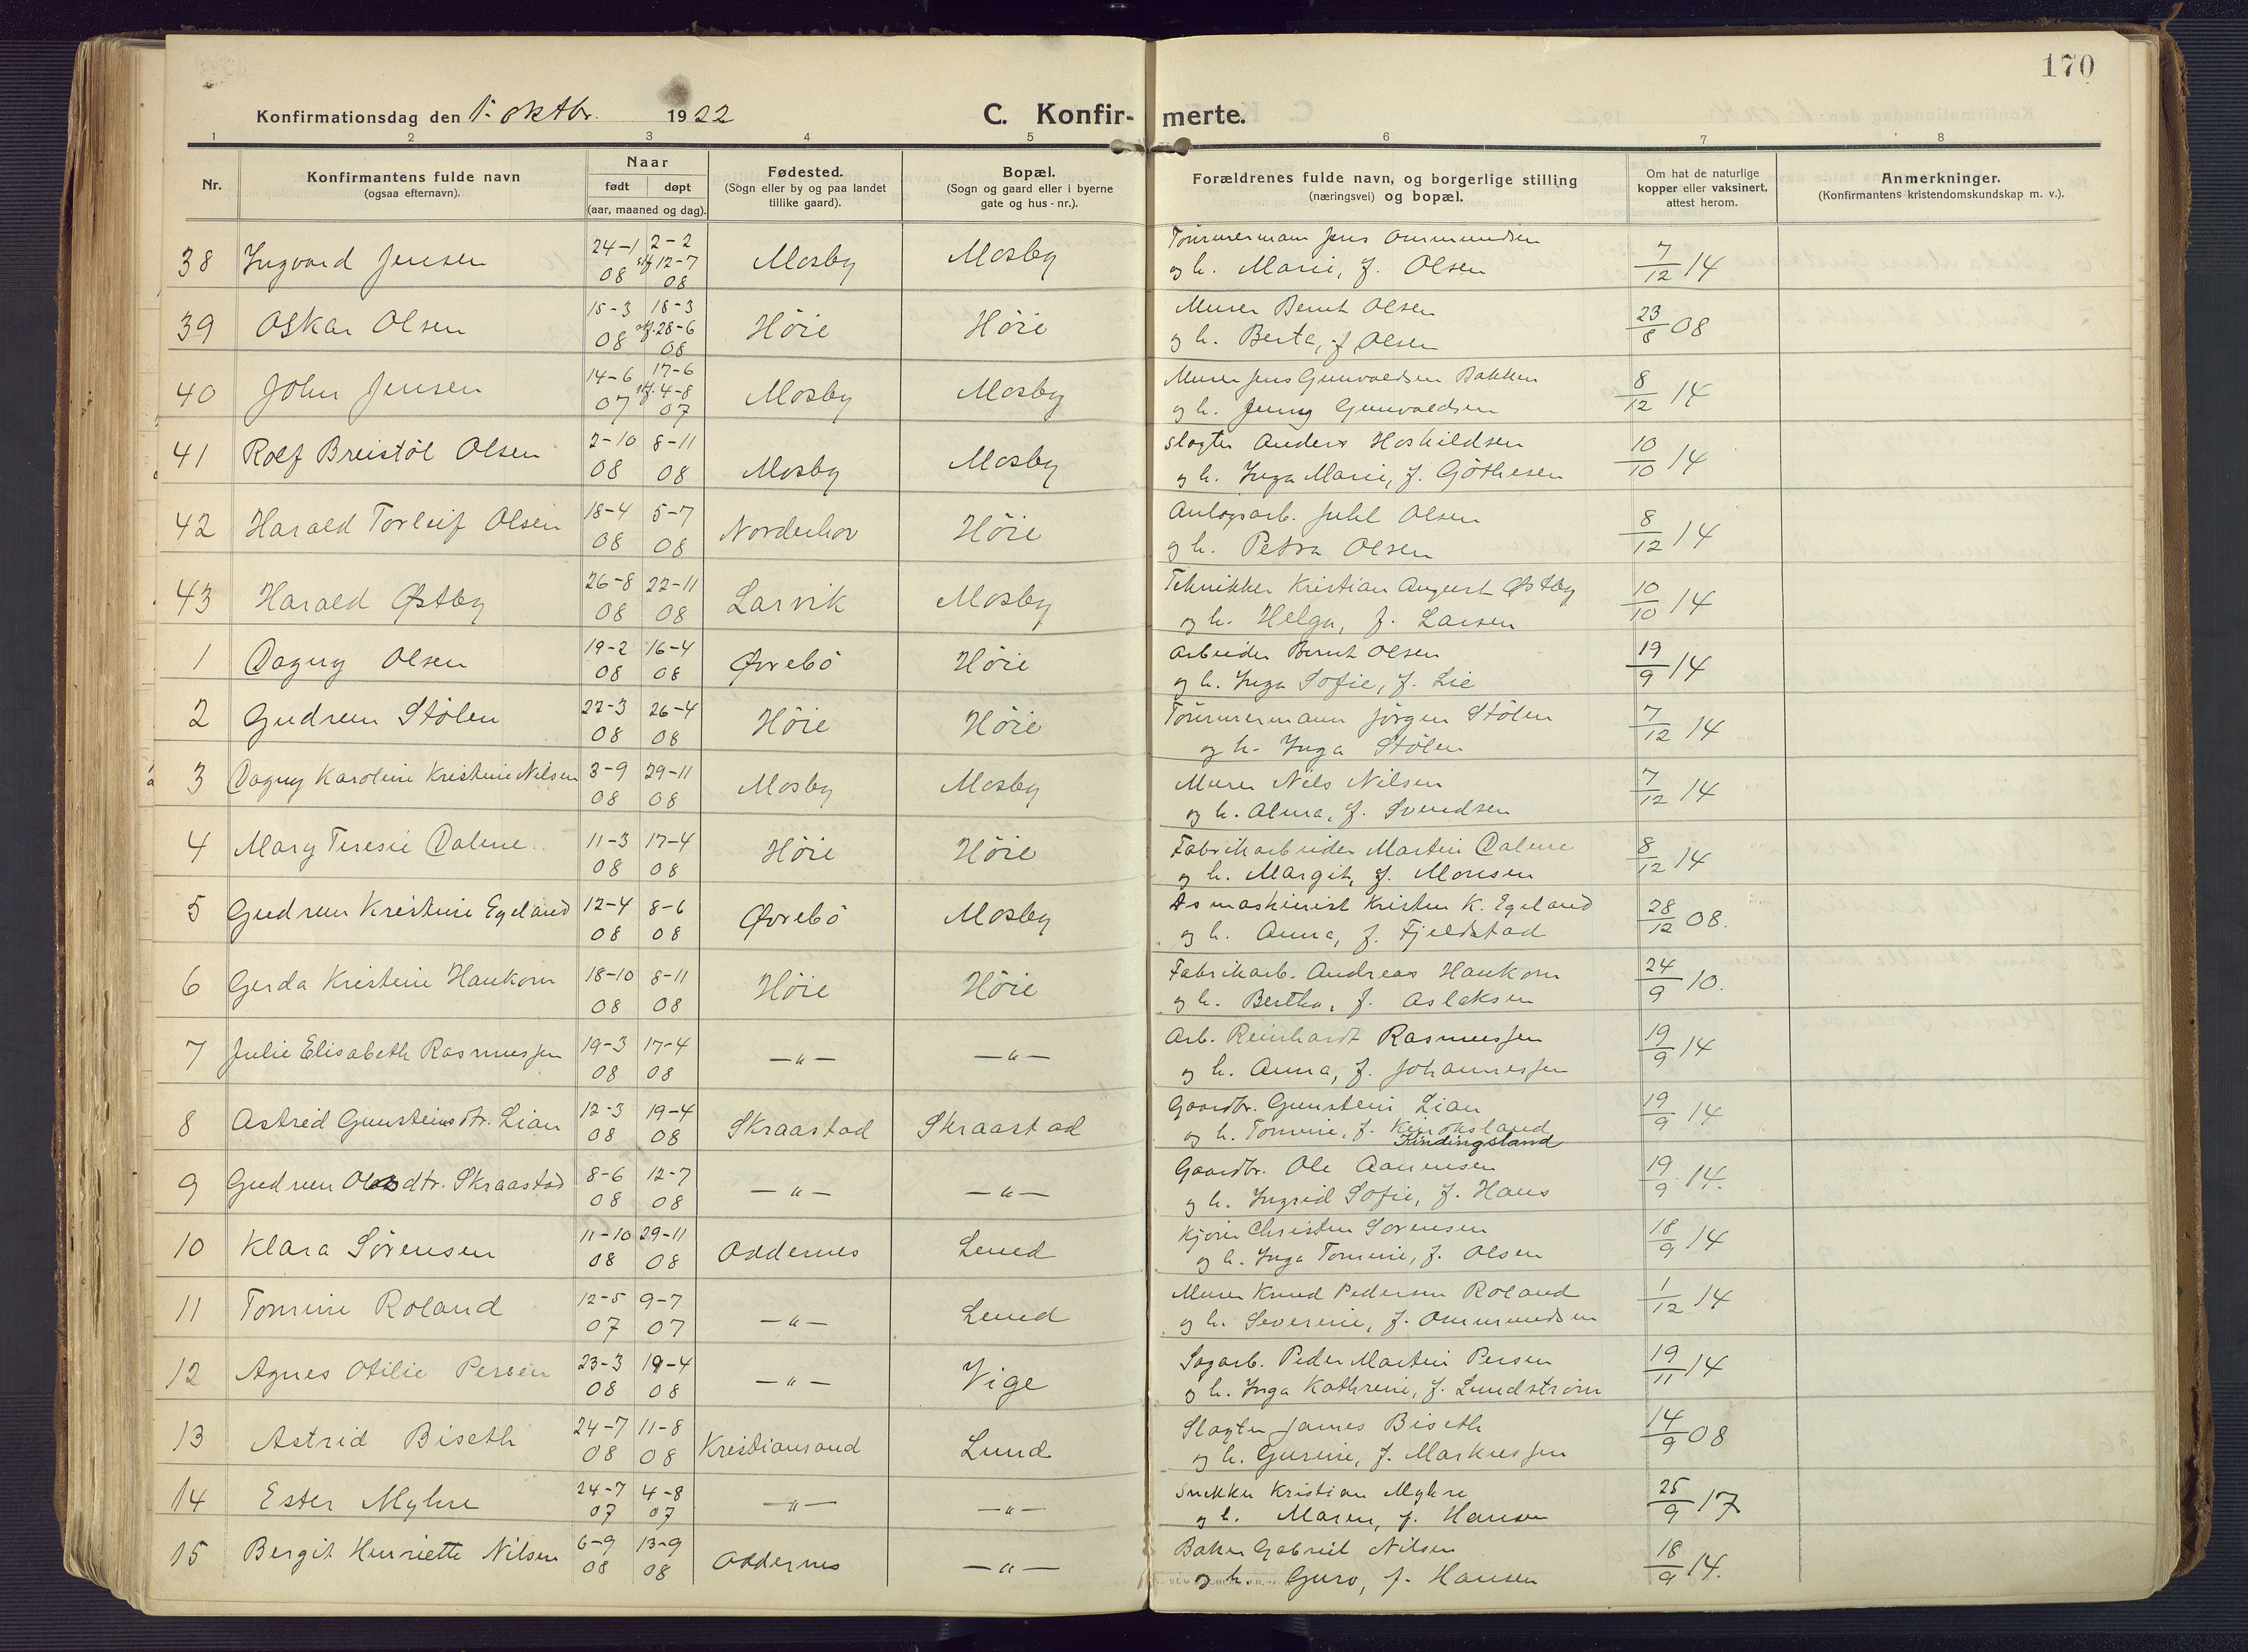 170
Konfirmationsdag den 1. oktbr. 1922 C. Konfirmerte.
1 2 3 4 5 6 7 8
Nr. Konfirmantens fulde navn (ogsaa efternavn). Naar født døpt (aar, maaned og dag). Fødested. (Sogn eller by og paa landet tillike gaard). Bopæl. (Sogn og gaard eller i byerne gate og hus-nr.). Forældrenes fulde navn, og borgerlige stilling (næringsvei) og bopæl. Om hat de naturlige kopper eller vaksinert, attest herom. Anmerkninger. (Konfirmantens kristendomskundskap m. v.).
38 Ingvard Jensen 24-1 08 2-2 stf. 12-7 08 Mosby Mosby Tömmermann Jens Ommundsen
og h. Marie, f. Olsen 7/12 14
39 Oskar Olsen 15-3 08 18-3 stf. 28-6 08 Höie Höie Murer Bernt Olsen
og h. Berta, f. Olsen 23/8 08
40 John Jensen 14-6 07 17-6 stf. 4-8 07 Mosby Mosby Murer Jens Gunvaldsen Bakken
og h. Jenny Gunvaldsen 8/12 14
41 Rolf Breistöl Olsen 2-10 08 8-11 08 Mosby Mosby Slagter Anders Hoskildsen
og h. Inga Marie, f. Göthesen 10/10 14
42 Harald Torleif Olsen 18-4 08 5-7 08 Norderhov Höie Anlægsarb. Juhl Olsen
og h. Petra Olsen 8/12 14
43 Harald Østby 26-8 08 22-11 08 Larvik Mosby Teknikker Kristian August Østby
og h. Helga, f. Larsen 10/10 14
1 Dagny Olsen 19-2 08 16-4 08 Øvrebö Höie Arbeider Bernt Olsen
og h. Inga Sofie, f. Lie 19/9 14
2 Gudrun Stölen 22-3 08 26-4 08 Höie Höie Tömmermann Jörgen Stölen
og h. Inga Stölen 7/12 14
3 Dagny Karoline Kristine Nilsen 3-9 08 29-11 08 Mosby Mosby Murer Nils Nilsen
og h. Alma, f. Svendsen 7/12 14
4 Mary Teresie Dalene 11-3 08 17-4 08 Höie Höie Fabrikarbeider Martin Dalene
og h. Margit, f. Monsen 8/12 14
5 Gudrun Kristine Egeland 12-4 08 8-6 08 Øvrebö Mosby As maskinist Kristen K. Egeland
og h. Anna, f. Fjeldstad 28/12 08.
6 Gerda Kristine Haukom 18-10 08 8-11 08 Höie Höie Fabrikarb. Andreas Haukom
og h. Bertha, f. Aslaksen 24/9 10.
7 Julie Elisabeth Rasmussen 19-3 08 17-4 08 —"— —"— Arb. Reinhardt Rasmussen
og h. Anna, f. Johannessen 19/9 14
8 Astrid Gunsteinsdtr. Lian 12-3 08 19-4 08 Skraastad Skraastad Gaardbr. Gunstein Lian
og h. Tomine, f. Kindingsland 19/9 14
9 Gudrun Olasdtr. Skraastad 8-6 08 12-7 08 —"— —"— Gaardbr. Ole Aanensen
og h. Ingrid Sofie, f. Haus 19/9 14.
10 Klara Sörensen 11-10 08 29-11 08 Oddernes Lund Kjörer Christen Sörensen
og h. Inga Tomine, f. Olsen 18/9 14
11 Tomine Roland 12-5 07 9-7 07 —"— Lund Murer Knud Pedersen Roland
og h. Severine, f. Ommundsen 1/12 14
12 Agnes Otilie Persen 23-3 08 19-4 08 —"— Vige Sagarb. Peder Martin Persen
og h. Inga Kathrine, f. Lundström 19/11 14
13 Astrid Biseth 24-7 08 11-8 08 Kristiansand Lund Slagter James Biseth
og h. Gurine, f. Markussen 14/9 08
14 Ester Myhre 24-7 07 4-8 07 —"— —"— Snekker Kristian Myhre
og h. Maren, f. Hansen 25/9 17
15 Bergit Henriette Nilsen 6-9 08 13-9 08 Oddernes —"— Baker Gabriel Nilsen
og h. Guro, f. Hansen 18/9 14.